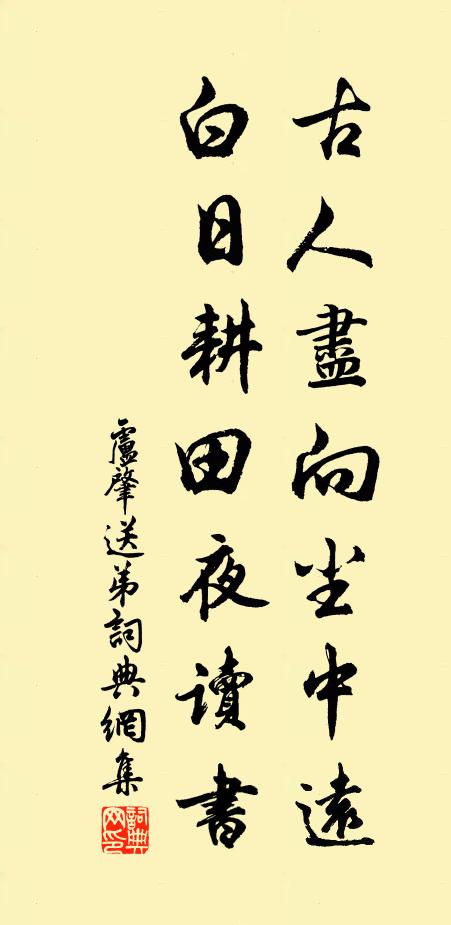 古人盡向尘中遠
白日耕田夜讀書
盧肇送弟詞典網集
詞典
网印